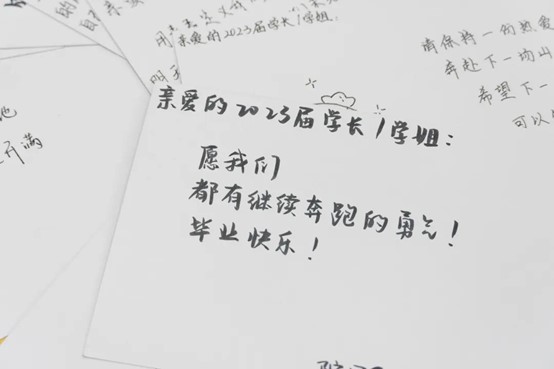 亲爱的2023届学长/学姐：
亲爱的2023届学长/学姐：
愿我们
都有继续奔跑的勇气！
毕业快乐！
请保持一份热爱
奔赴下一场山
希望下一
可以